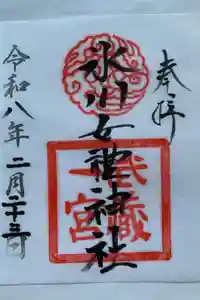 奉拝
氷川女神神社
武蔵一宮
令和八年二月二十三日